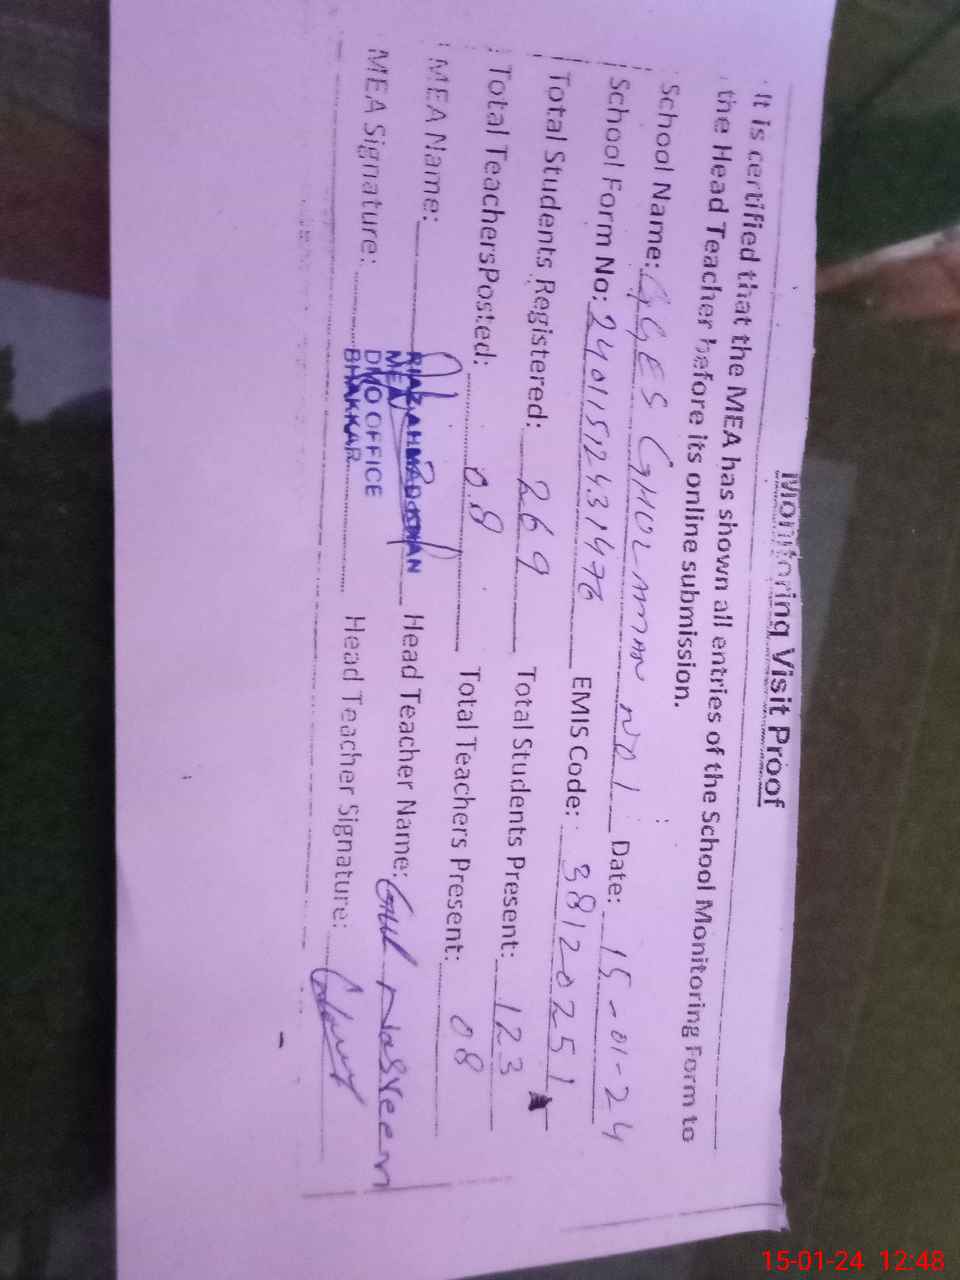 Monitoring Visit Proof
It is certified that the MEA has shown all entries of the School Monitoring Form to
the Head Teacher before its online submission.
School Name: GGES GHOLAMAN NO 1 Date: 15-01-24
School Form No: 24011512431476 EMIS Code: 38120251
Total Students Registered: 269 Total Students Present: 123
Total TeachersPosted: 08 Total Teachers Present: 08
MEA Name: Head Teacher Name: Gul Nasreen
RIAZ AHMAD KHAN
MEA
DMO OFFICE
BHAKKAR
MEA Signature: Head Teacher Signature:
15-01-24 12:48